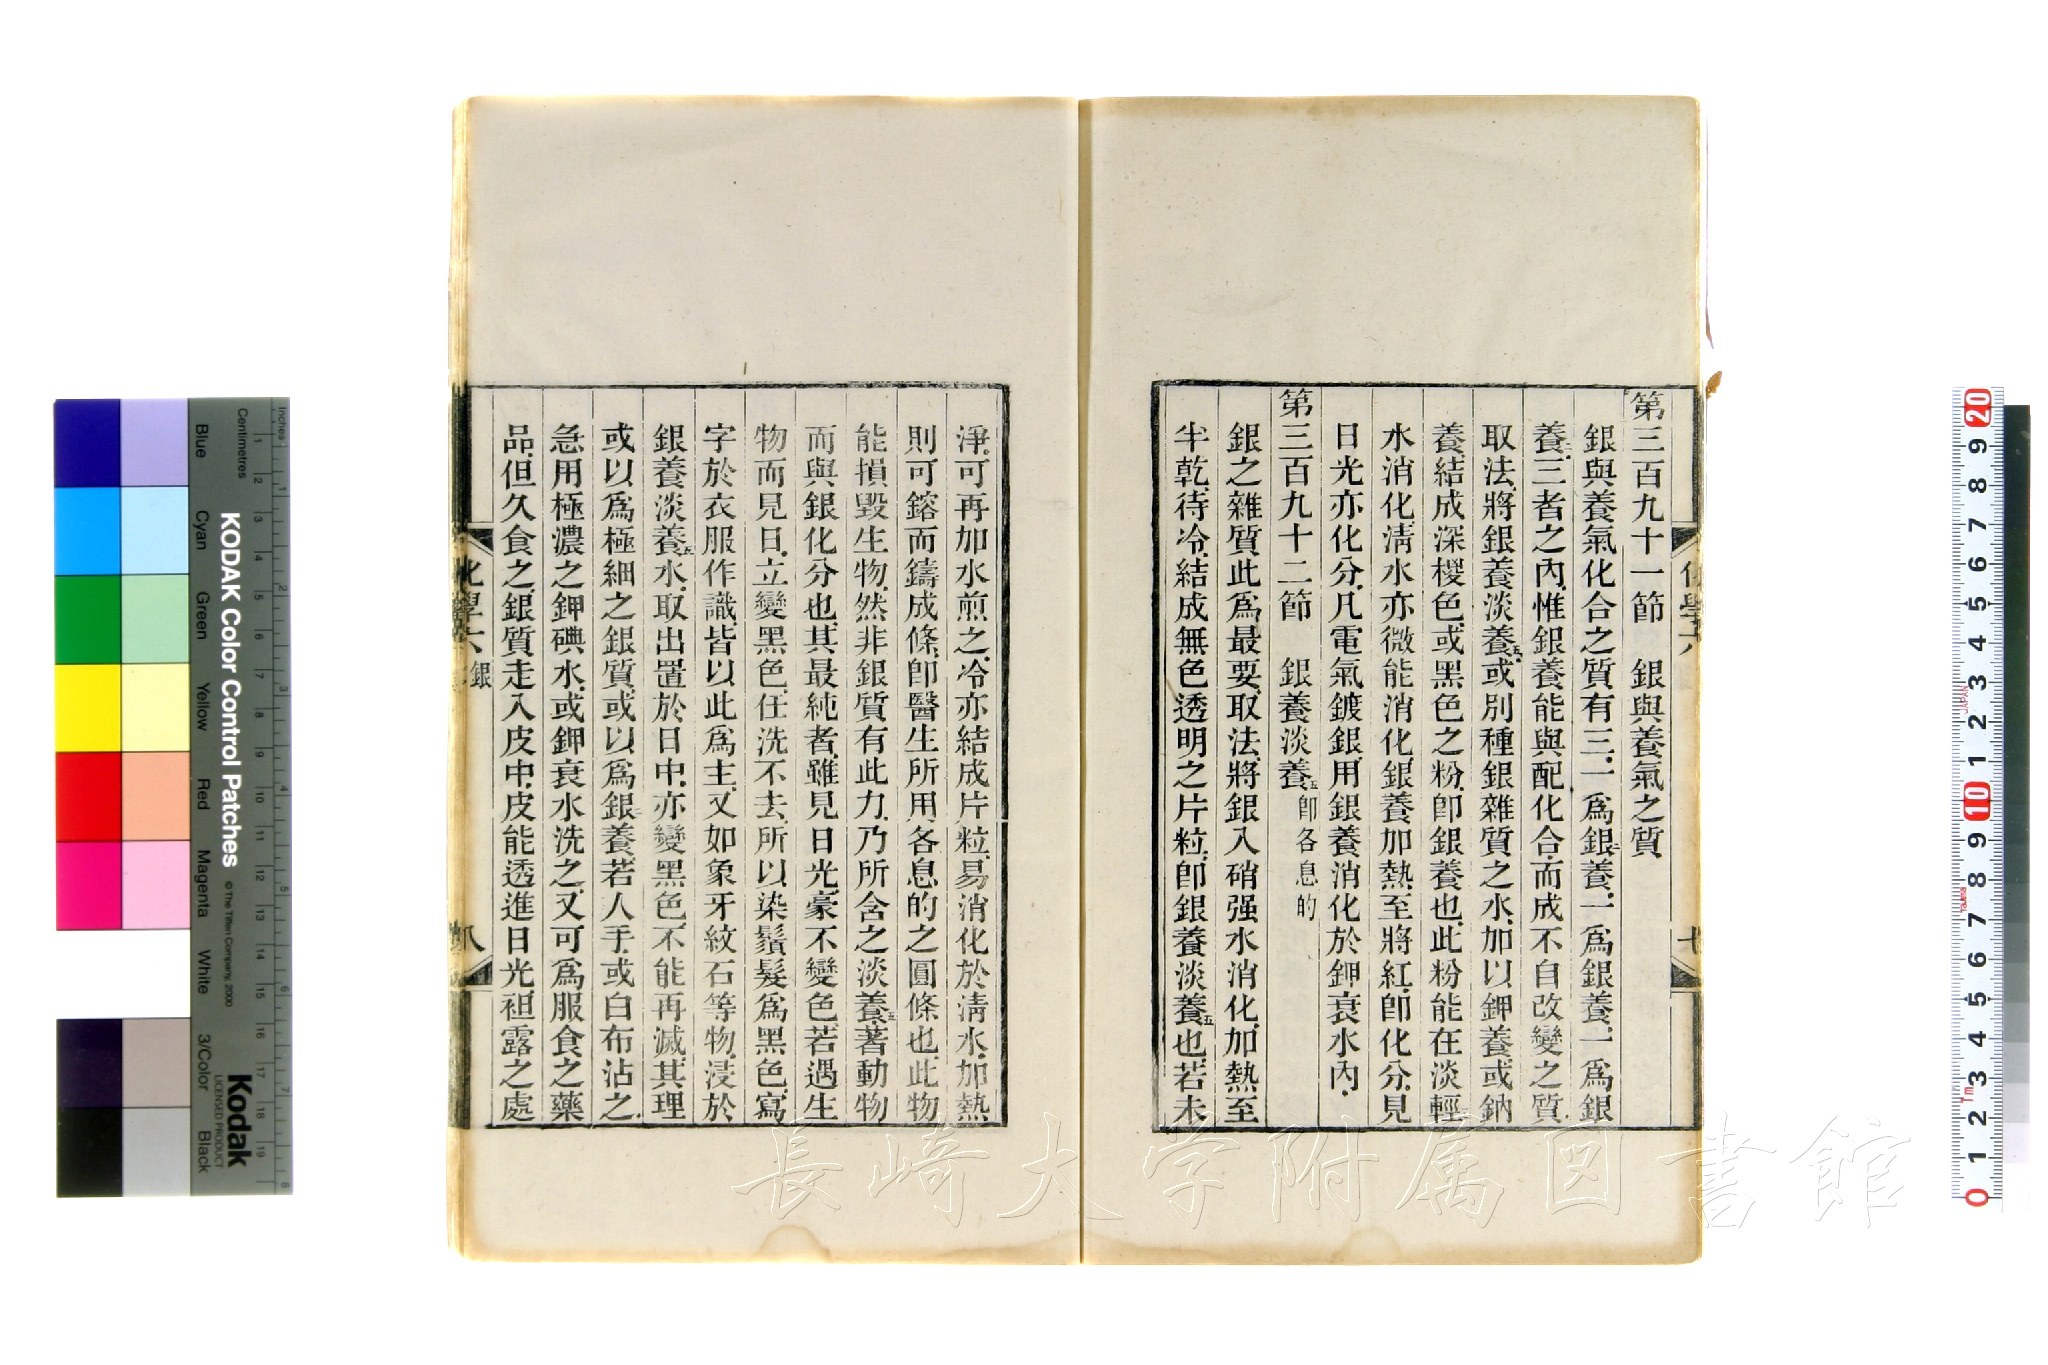 第三百九十一節　銀與養氣之質
銀與養氣化合之質有三、一爲銀二養、一爲銀養、一爲銀
養二、三者之內、惟銀養能與配化合、而成不自改變之質、
取法、將銀養淡養五、或別種銀雜質之水、加以鉀養、或鈉
養、結成深椶色、或黑色之粉、卽銀養也、此粉能在淡輕
水消化、淸水亦微能消化、銀養加熱、至將紅、卽化分、見
日光亦化分、凡電氣鍍銀、用銀養消化於鉀衰水內、
第三百九十二節　銀養淡養五卽各息的
銀之雜質、此爲最要、取法、將銀入硝强水消化、加熱、至
半乾、待冷、結成無色透明之片粒、卽銀養淡養五也、若未
化學六
七
淨、可再加水煎之、冷亦結成片粒、易消化於淸水、加熱、
則可鎔而鑄成條、卽醫生所用各息的之圓條也、此物
能損毀生物、然非銀質有此力、乃所含之淡養五、著動物
而與銀化分也、其最純者、雖見日光、豪不變色、若遇生
物而見日、立變黑色、任洗不去、所以染鬚髮爲黑色、寫
字於衣服作識、皆以此爲主、又如象牙紋石等物、浸於
銀養淡養五水、取出置於日中、亦變黑色、不能再滅、其理
或以爲極細之銀質、或以爲銀二養、若人手、或白布沾之、
急用極濃之鉀碘水、或鉀衰水洗之、又可爲服食之藥
品、但久食之、銀質走入皮中、皮能透進日光、袒露之處
化學六
銀
八
Inches
Centimetres
KODAK Color Control Patches
© The Tiffen Company, 2000
Kodak
LICENSED PRODUCT
Blue
Cyan
Green
Yellow
Red
Magenta
White
3/Color
Black
長崎大学附属図書館